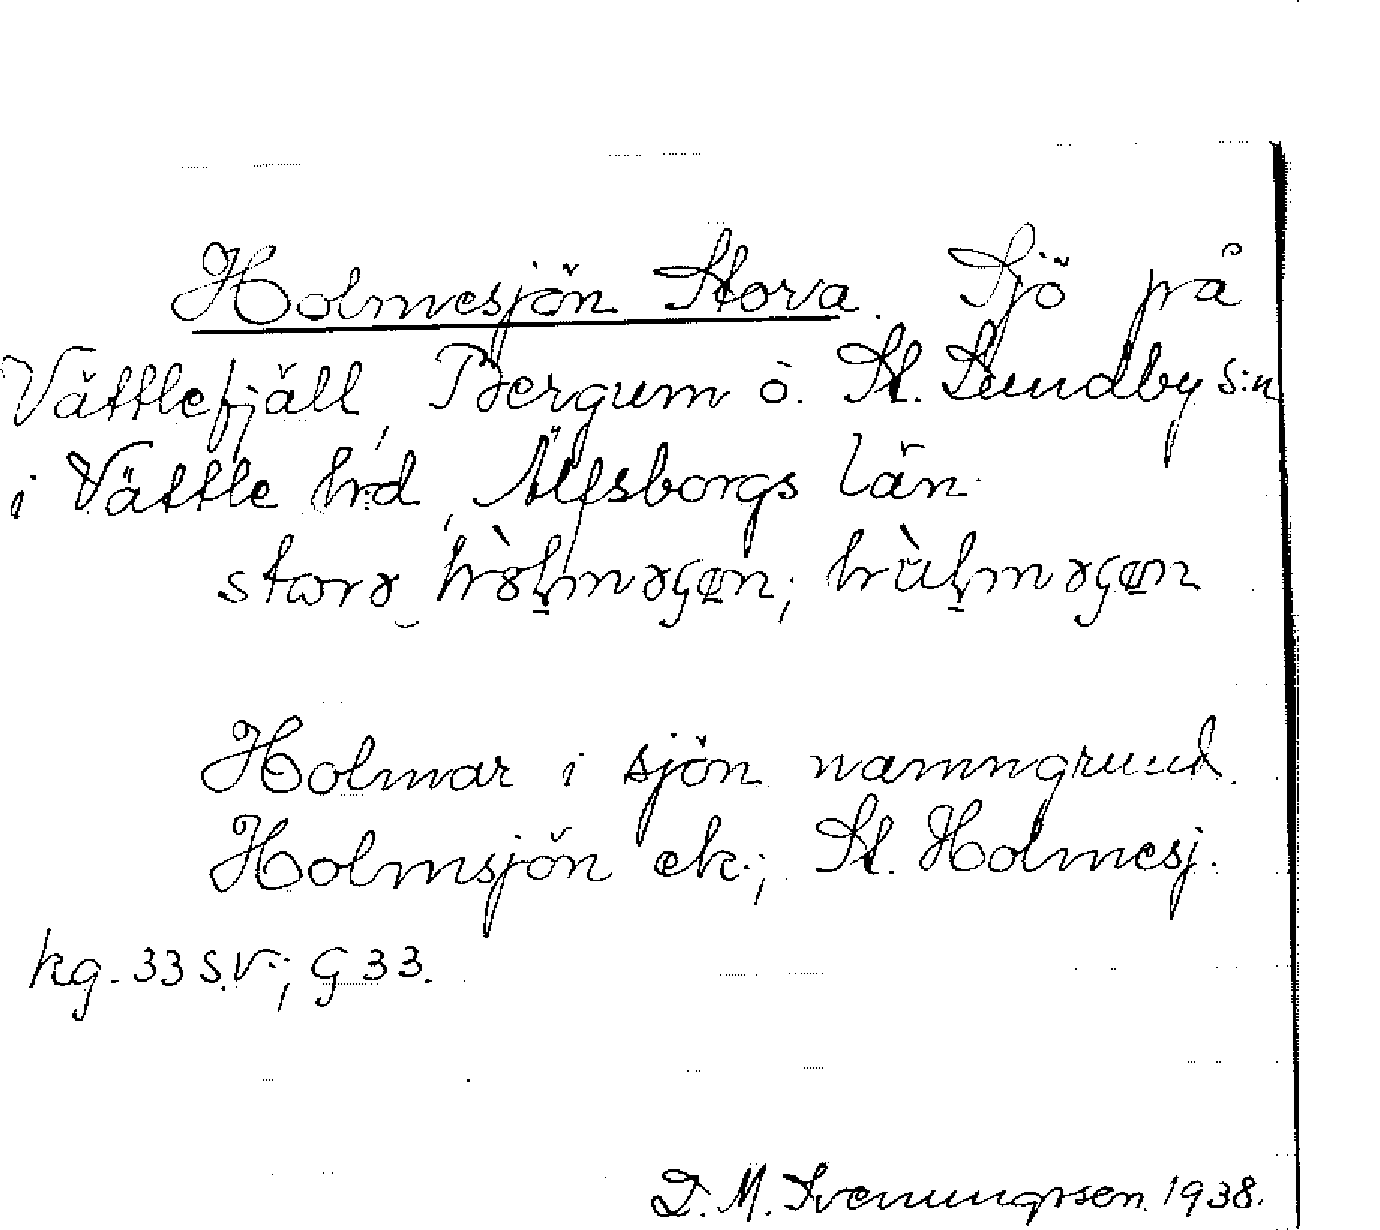 Holmesjön Stora. Sjö på
Vättlefjäll, Bergum o. St. Lundby s:n
i Vättle hrd, Älfsborgs län.
Holmar i sjön namngrund.
Holmsjön ek.; St. Holmesj.
kg. 33 S.V.; G 33.
D. M. 1938.